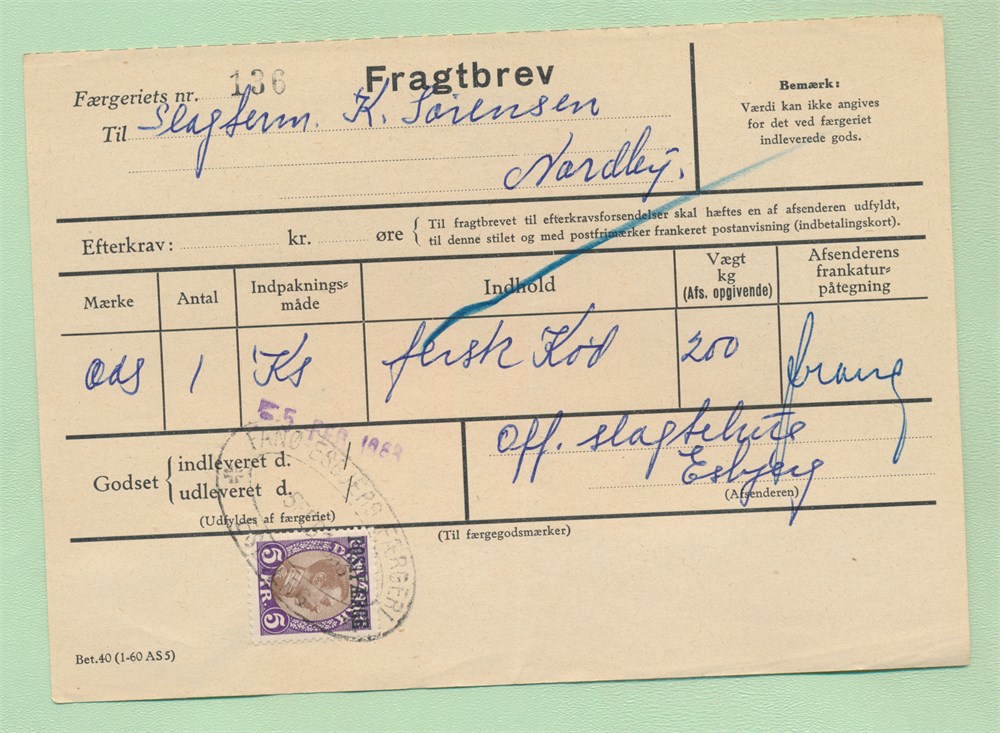 Fragtbrev
Færgeriets nr. 136
Til Slagterm. K. Sørensen
Nordby.
Bemærk:
Værdi kan ikke angives
for det ved færgeriet
indleverede gods.
Efterkrav: kr. øre { Til fragtbrevet til efterkravsforsendelser skal hæftes en af afsenderen udfyldt,
til denne stilet og med postfrimærker frankeret postanvisning (indbetalingskort).
Mærke Antal Indpaknings-
måde Indhold Vægt
kg
(Afs. opgivende) Afsenderens
frankatur-
påtegning
ods 1 Ks fersk Kød 200
5 FEB. 196
Godset { indleveret d. /
udleveret d. /
(Udfyldes af færgeriet)
Off. slagtehuse
Esbjerg
(Afsenderen)
(Til færgegodsmærker)
FANØ ESBJERG FÆRGERI
POSTFÆRGE
DANMARK
5 KR. 5
Bet. 40 (1-60 AS5)